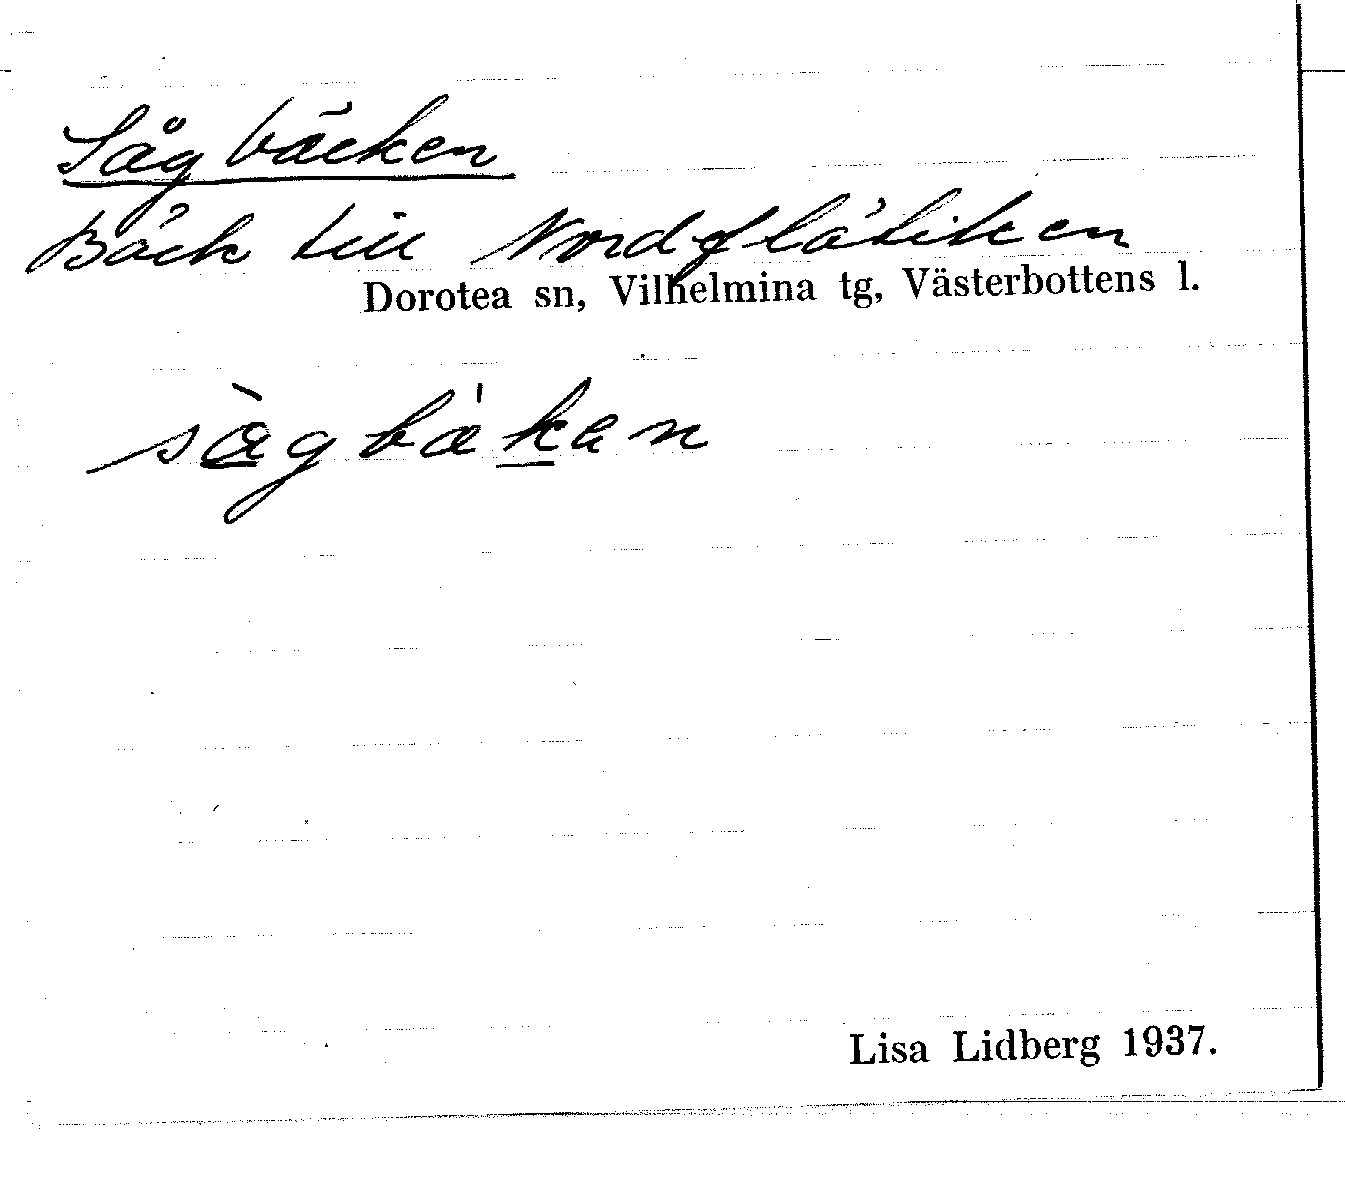 Sågbäcken
Bäck till Nordflåtiken
Dorotea sn, Vilhelmina tg, Västerbottens l.
Lisa Lidberg 1937.